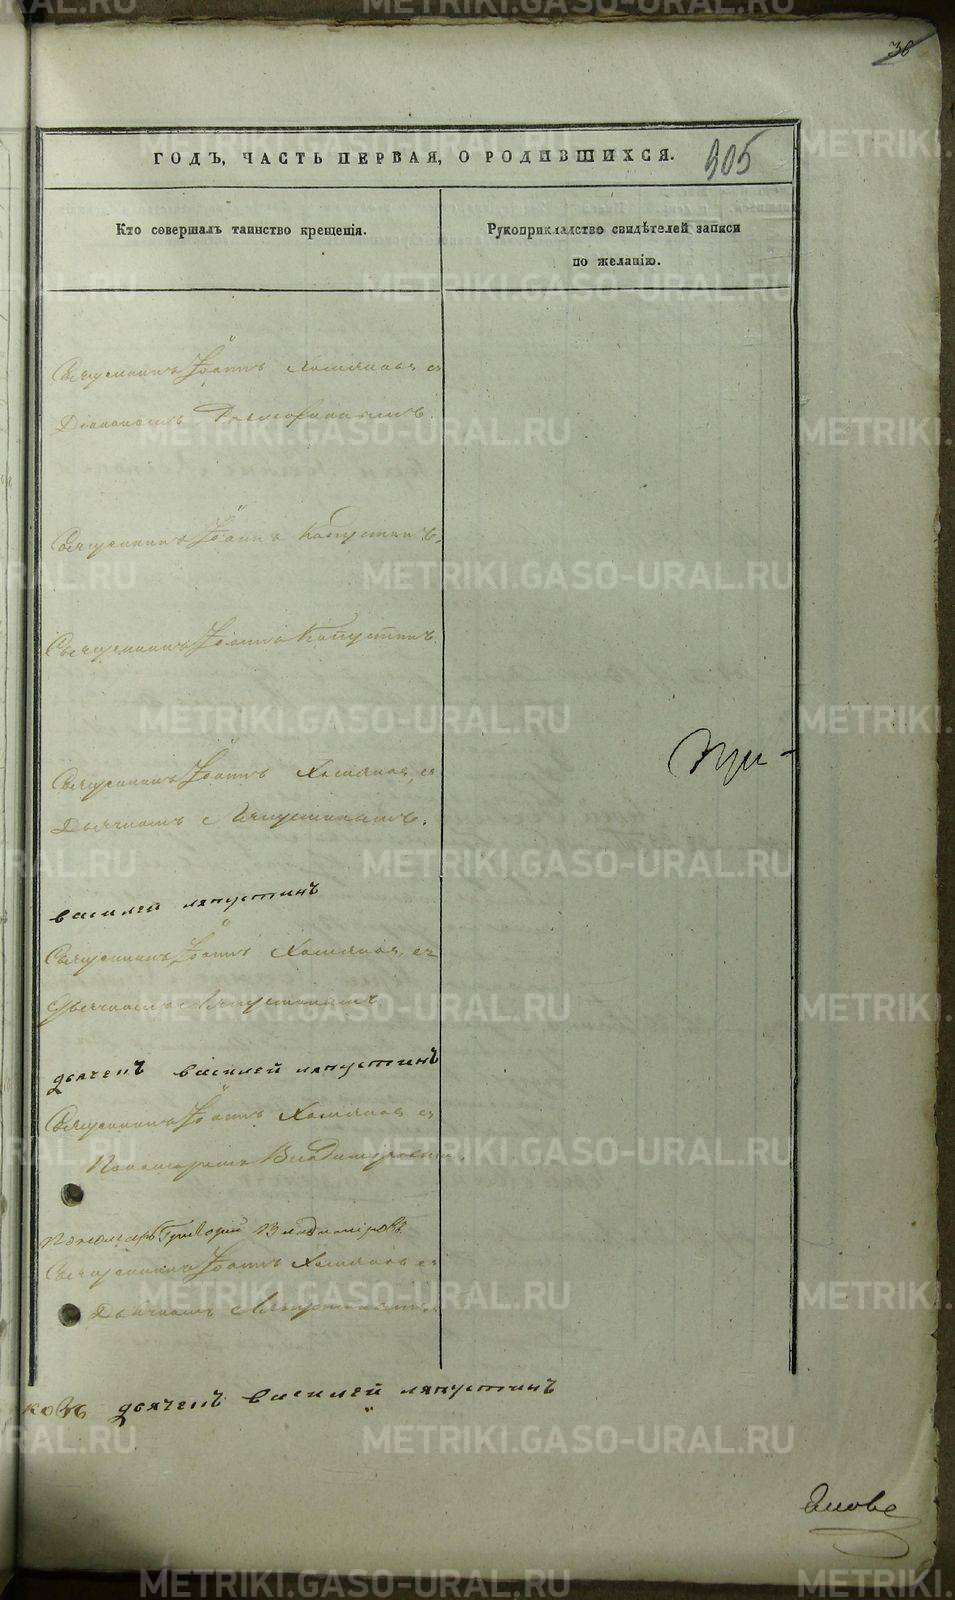 38
ГОДЪ, ЧАСТЬ ПЕРВАЯ, О РОДИВШИХСЯ.
905
Кто совершалъ таинство крещенія.
Рукоприкладство свидѣтелей записи
по желанію.
Священникъ Іоаннъ Хомяковъ съ
Діакономъ
Священникъ Іоаннъ Капустинъ,
Священникъ Іоаннъ Капустинъ.
При-
Священникъ Іоаннъ Хомяковъ съ
Дьячкомъ Ляпустинымъ.
василей ляпустинъ
Священникъ Іоаннъ Хомяковъ съ
Дьячкомъ Ляпустинымъ.
дьячекъ василей ляпустинъ
Священникъ Іоаннъ Хомяковъ съ
Пономаремъ Владимировымъ.
Пономарь Григорій Владиміровъ
Священникъ Іоаннъ Хомяковъ съ
Дьячкомъ Ляпустинымъ.
ковъ дьячекъ василей ляпустинъ
METRIKI.GASO-URAL.RU